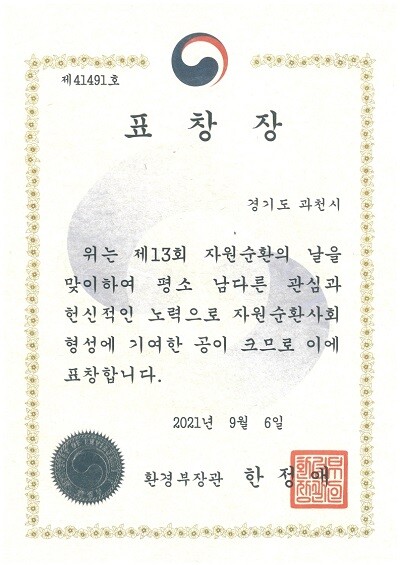 제41491호
표 창 장
경기도 과천시
위는 제13회 자원순환의 날을
맞이하여 평소 남다른 관심과
헌신적인 노력으로 자원순환사회
형성에 기여한 공이 크므로 이에
표창합니다.
2021년 9월 6일
환경부장관 한정애